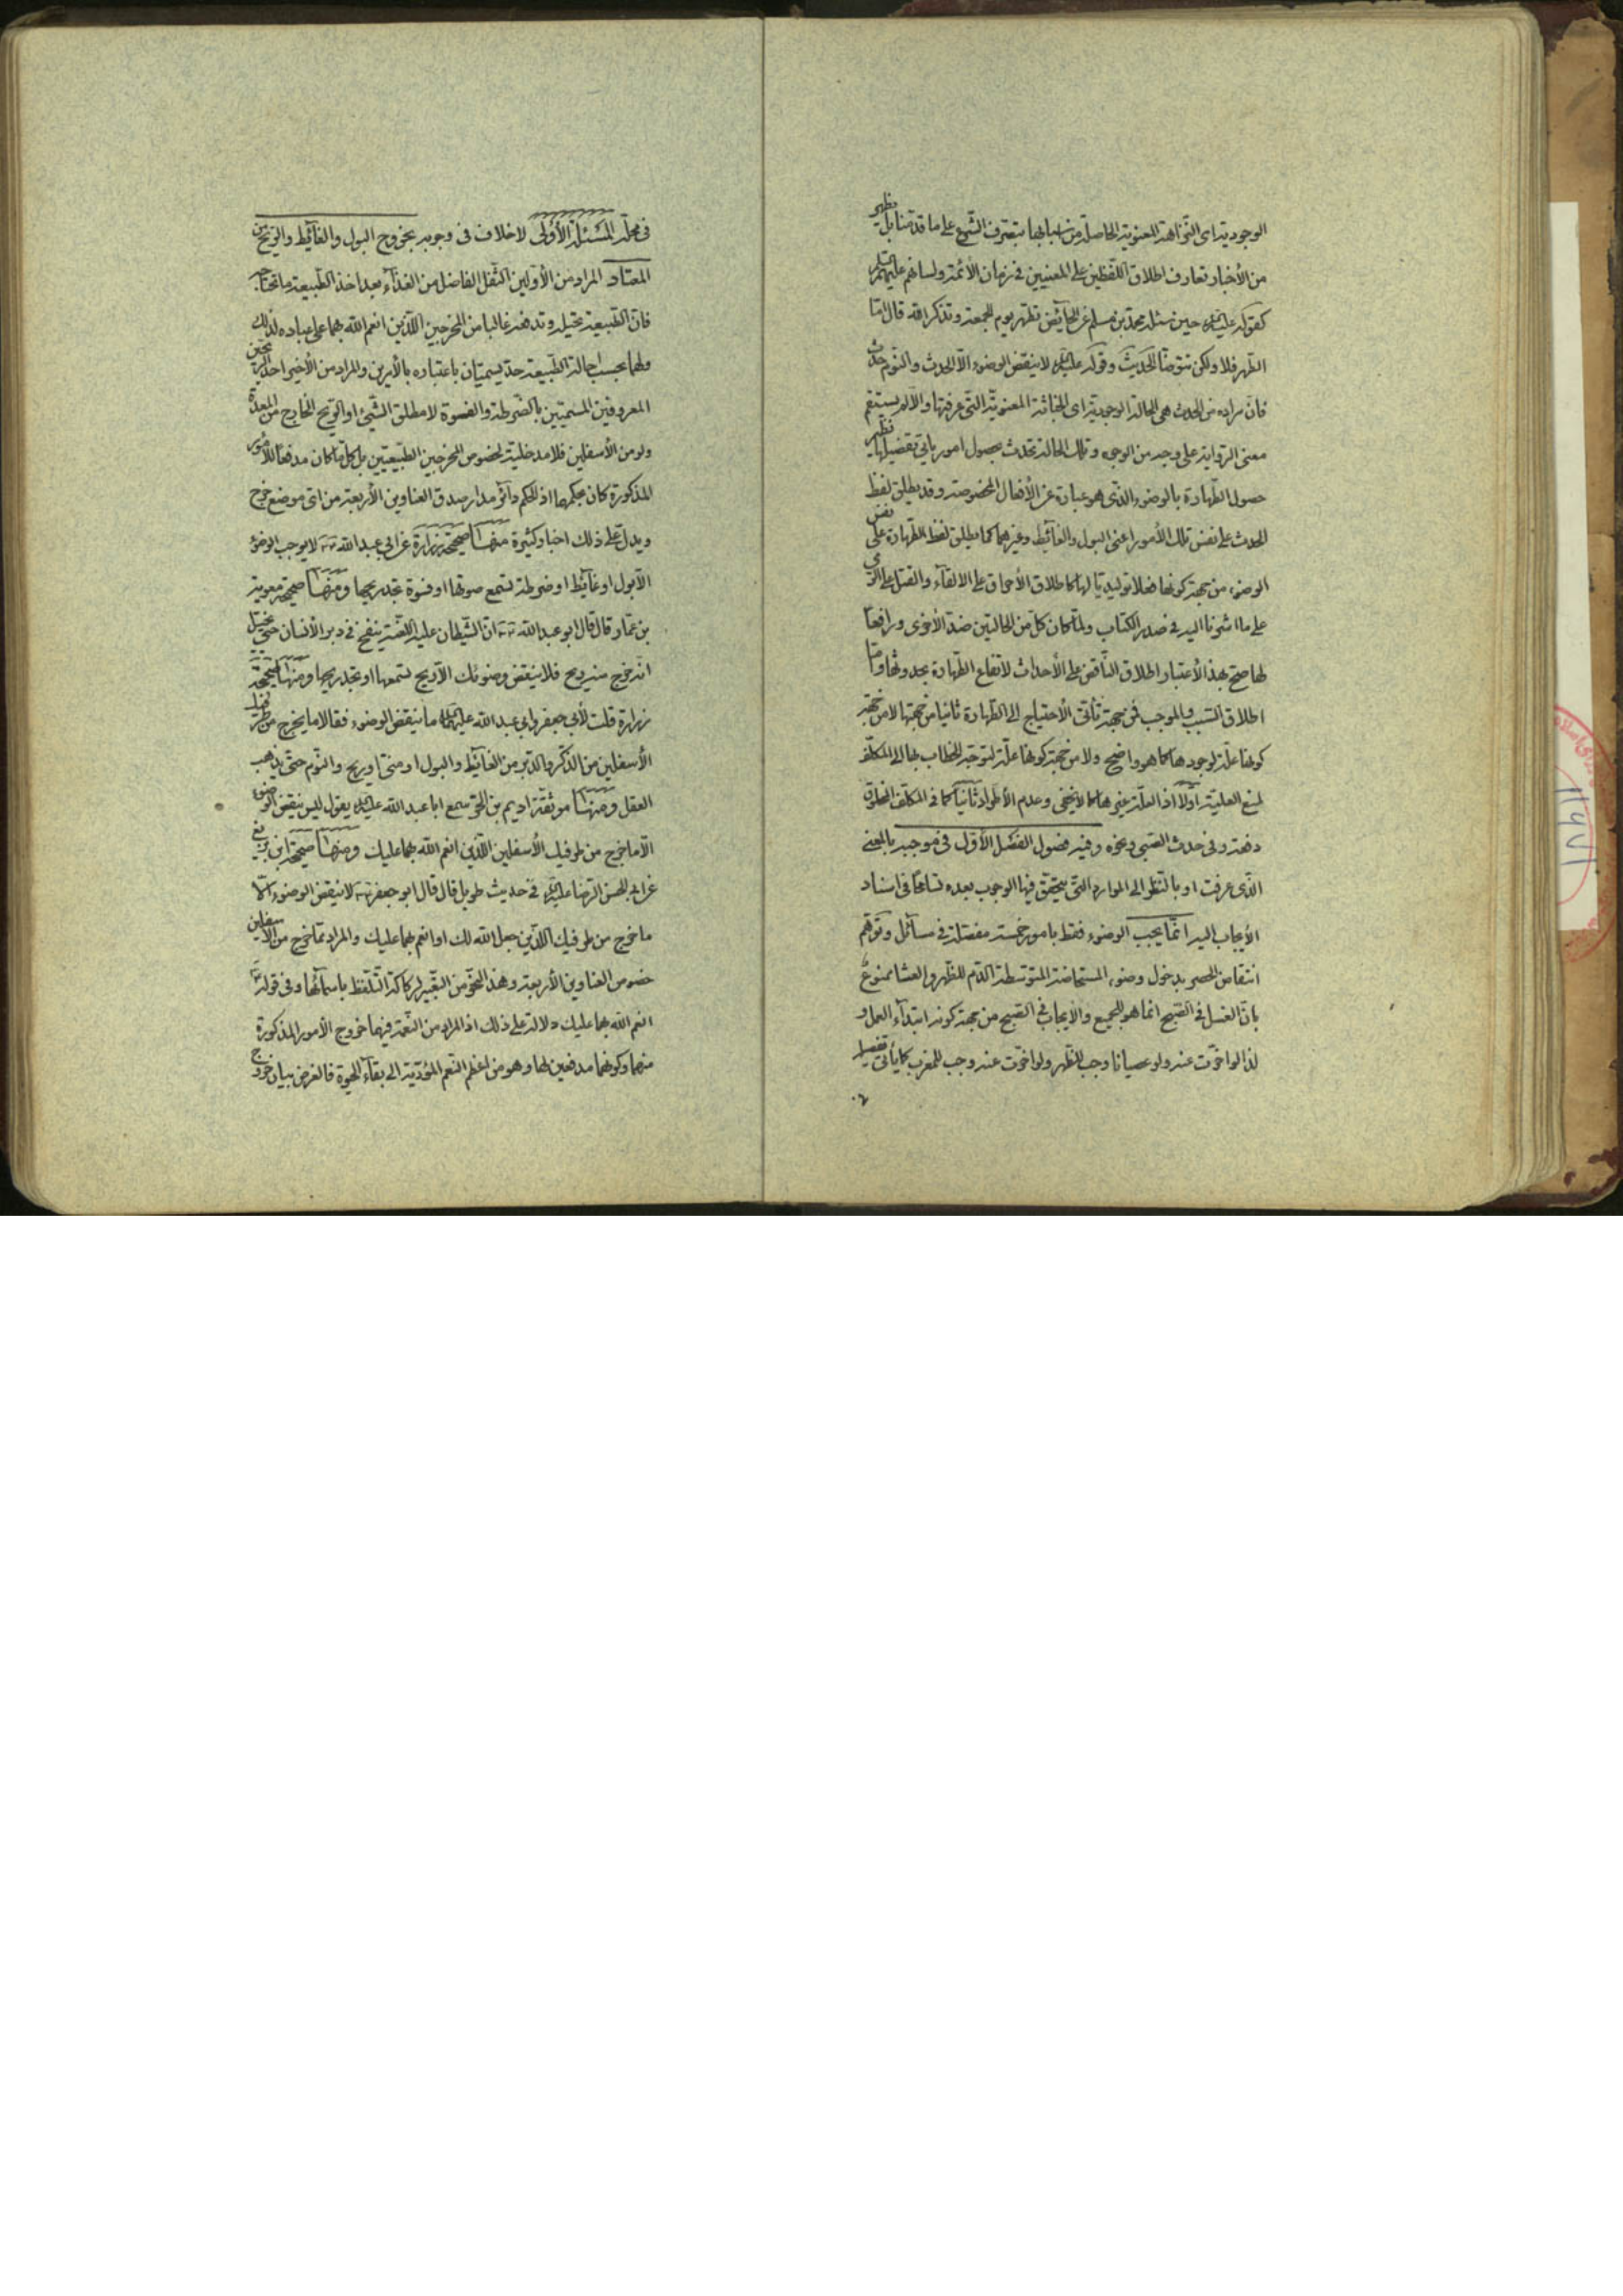 الوجودية اى النزاهة المعنوية الحاصلة من اسبابها بتصرف الشرع على ما قدمنا بل يظهر
من الأخبار تعارف اطلاق اللفظين على المعنيين فى زمان الأئمة ولسانهم عليهم
كقوله عليه حين سئله محمد بن مسلم عن الحائض تطهر يوم الجمعة وتذكر الله قال امّا
الطهر فلا ولكن تتوضأ الحديث وقوله عليه لا ينقض الوضوء الّا الحدث والنوم حدث
فان مراده من الحدث هى الحالة الوجودية اى الخباثة المعنوية التى عرفتها والّا لم يستقم
معنى الرواية على وجه من الوجوه وتلك الحالة تحدث بحصول امور يأتى تفضيلها
حصول الطهارة بالوضوء الذى هو عبارة عن الأفعال المخصوصة وقد يطلق لفظ
الحدث على نفس تلك الأمور اعنى البول والغائط وغيرهما كما يطلق لفظ الطهارة على نفس
الوضوء من جهة كونها فعلا توليديا لها كاطلاق الأحراق على الالقاء والقتل على الرمى
على ما اشرنا اليه فى صدر الكتاب ولما كان كل من الحالتين ضد الأخرى ورافعا
لها صح بهذا الأعتبار اطلاق الناقض على الأحداث لارتفاع الطهارة بحدوثها وامّا
اطلاق السبب والموجب فمن جهة تأتى الأحتياج الى الطهارة ثانيا من جهتها لا من جهة
كونها علة لوجودها كما هو واضح ولا من جهة كونها علة لتوجه الخطاب بها الى المكلف
لمنع العلية اولا اذ العلة غيرها كما لا يخفى وعدم الأطراد ثانيا كما فى المكلف
دفعة وفى حدث الصبى ونحوه وفيه فصول الفصل الأول فى موجبه بالمعنى
الذى عرفت او بالنظر الى الموارد التى يتحقق فيها الوجوب بعده تسامحا فى اسناد
الأيجاب اليه انما يجب الوضوء فقط بامور خمسة مفصلة فى مسائل وتوهم
انتقاض الحصر بدخول وضوء المستحاضة المتوسطة الدم للظهر والعشا ممنوع
بان الغسل فى الصبح انما هو للجميع والأيجاب فى الصبح من جهة كونه ابتداء العمل و
لذا لو اخرت عنه ولو عصيانا وجب للظهر ولو اخرت عنه وجب للمغرب كما يأتى تفصيله
فى محله المسئلة الأولى لاخلاف فى وجوبه بخروج البول والغائط والريح من
المعتاد المراد من الأولين الثفل الفاضل من الغذاء بعد اخذ الطبيعة ما تحتاجه
فان الطبيعة تحيله وتدفعه غالبا من المخرجين اللذين انعم الله بهما على عباده لذلك
ولهما بحسب احالة الطبيعة حد يسميان باعتباره بالأمرين والمراد من الأخير احد الريحين
المعروفين المسميين بالضرطة والفسوة لا مطلق الشىء او الريح الخارج من المعدة
ولو من الأسفلين فلا مدخلية لخصوص المخرجين الطبيعيين بل كل ما كان مدفعا للأمور
المذكورة كان بحكمهما اذ الحكم دائر مدار صدق العناوين الأربعة من اى موضع خرج
ويدل على ذلك اخبار كثيرة منها صحيحة زرارة عن ابى عبد الله لا يوجب الوضوء
الّا بول او غائط او ضرطة تسمع صوتها او فسوة تجد ريحها ومنها صحيحة معوية
بن عمار قال قال ابو عبد الله ان الشيطان عليه اللعنة ينفخ فى دبر الأنسان حتى يخيل
انه خرج منه ريح فلا ينقض وضوئك الّا ريح تسمعها او تجد ريحها ومنها صحيحة
زرارة قلت لأبى جعفر وابى عبد الله عليهما ما ينقض الوضوء فقالا ما يخرج من طرفيك
الأسفلين من الذكر والدبر من الغائط والبول او منى او ريح والنوم حتى يذهب
العقل ومنها موثقة اديم بن الحر سمع ابا عبد الله عليه يقول ليس ينقض الوضوء
الّا ما خرج من طرفيك الأسفلين الذين انعم الله بهما عليك ومنها صحيحة ابن بزيع
عن ابى الحسن الرضا عليه فى حديث طويل قال قال ابو جعفر لا ينقض الوضوء الّا
ما خرج من طرفيك اللذين جعل الله لك او انعم بهما عليك والمراد مما خرج من الأسفلين
خصوص العناوين الأربعة وهذا النحو من التعبير لركاكة التلفظ باسمائها وفى قوله
انعم الله بهما عليك دلالة على ذلك اذ المراد من النعمة فيهما خروج الأمور المذكورة
منهما وكونهما مدفعين لها وهو من اعظم النعم المؤدية الى بقاء الحيوة فالغرض بيان خروج